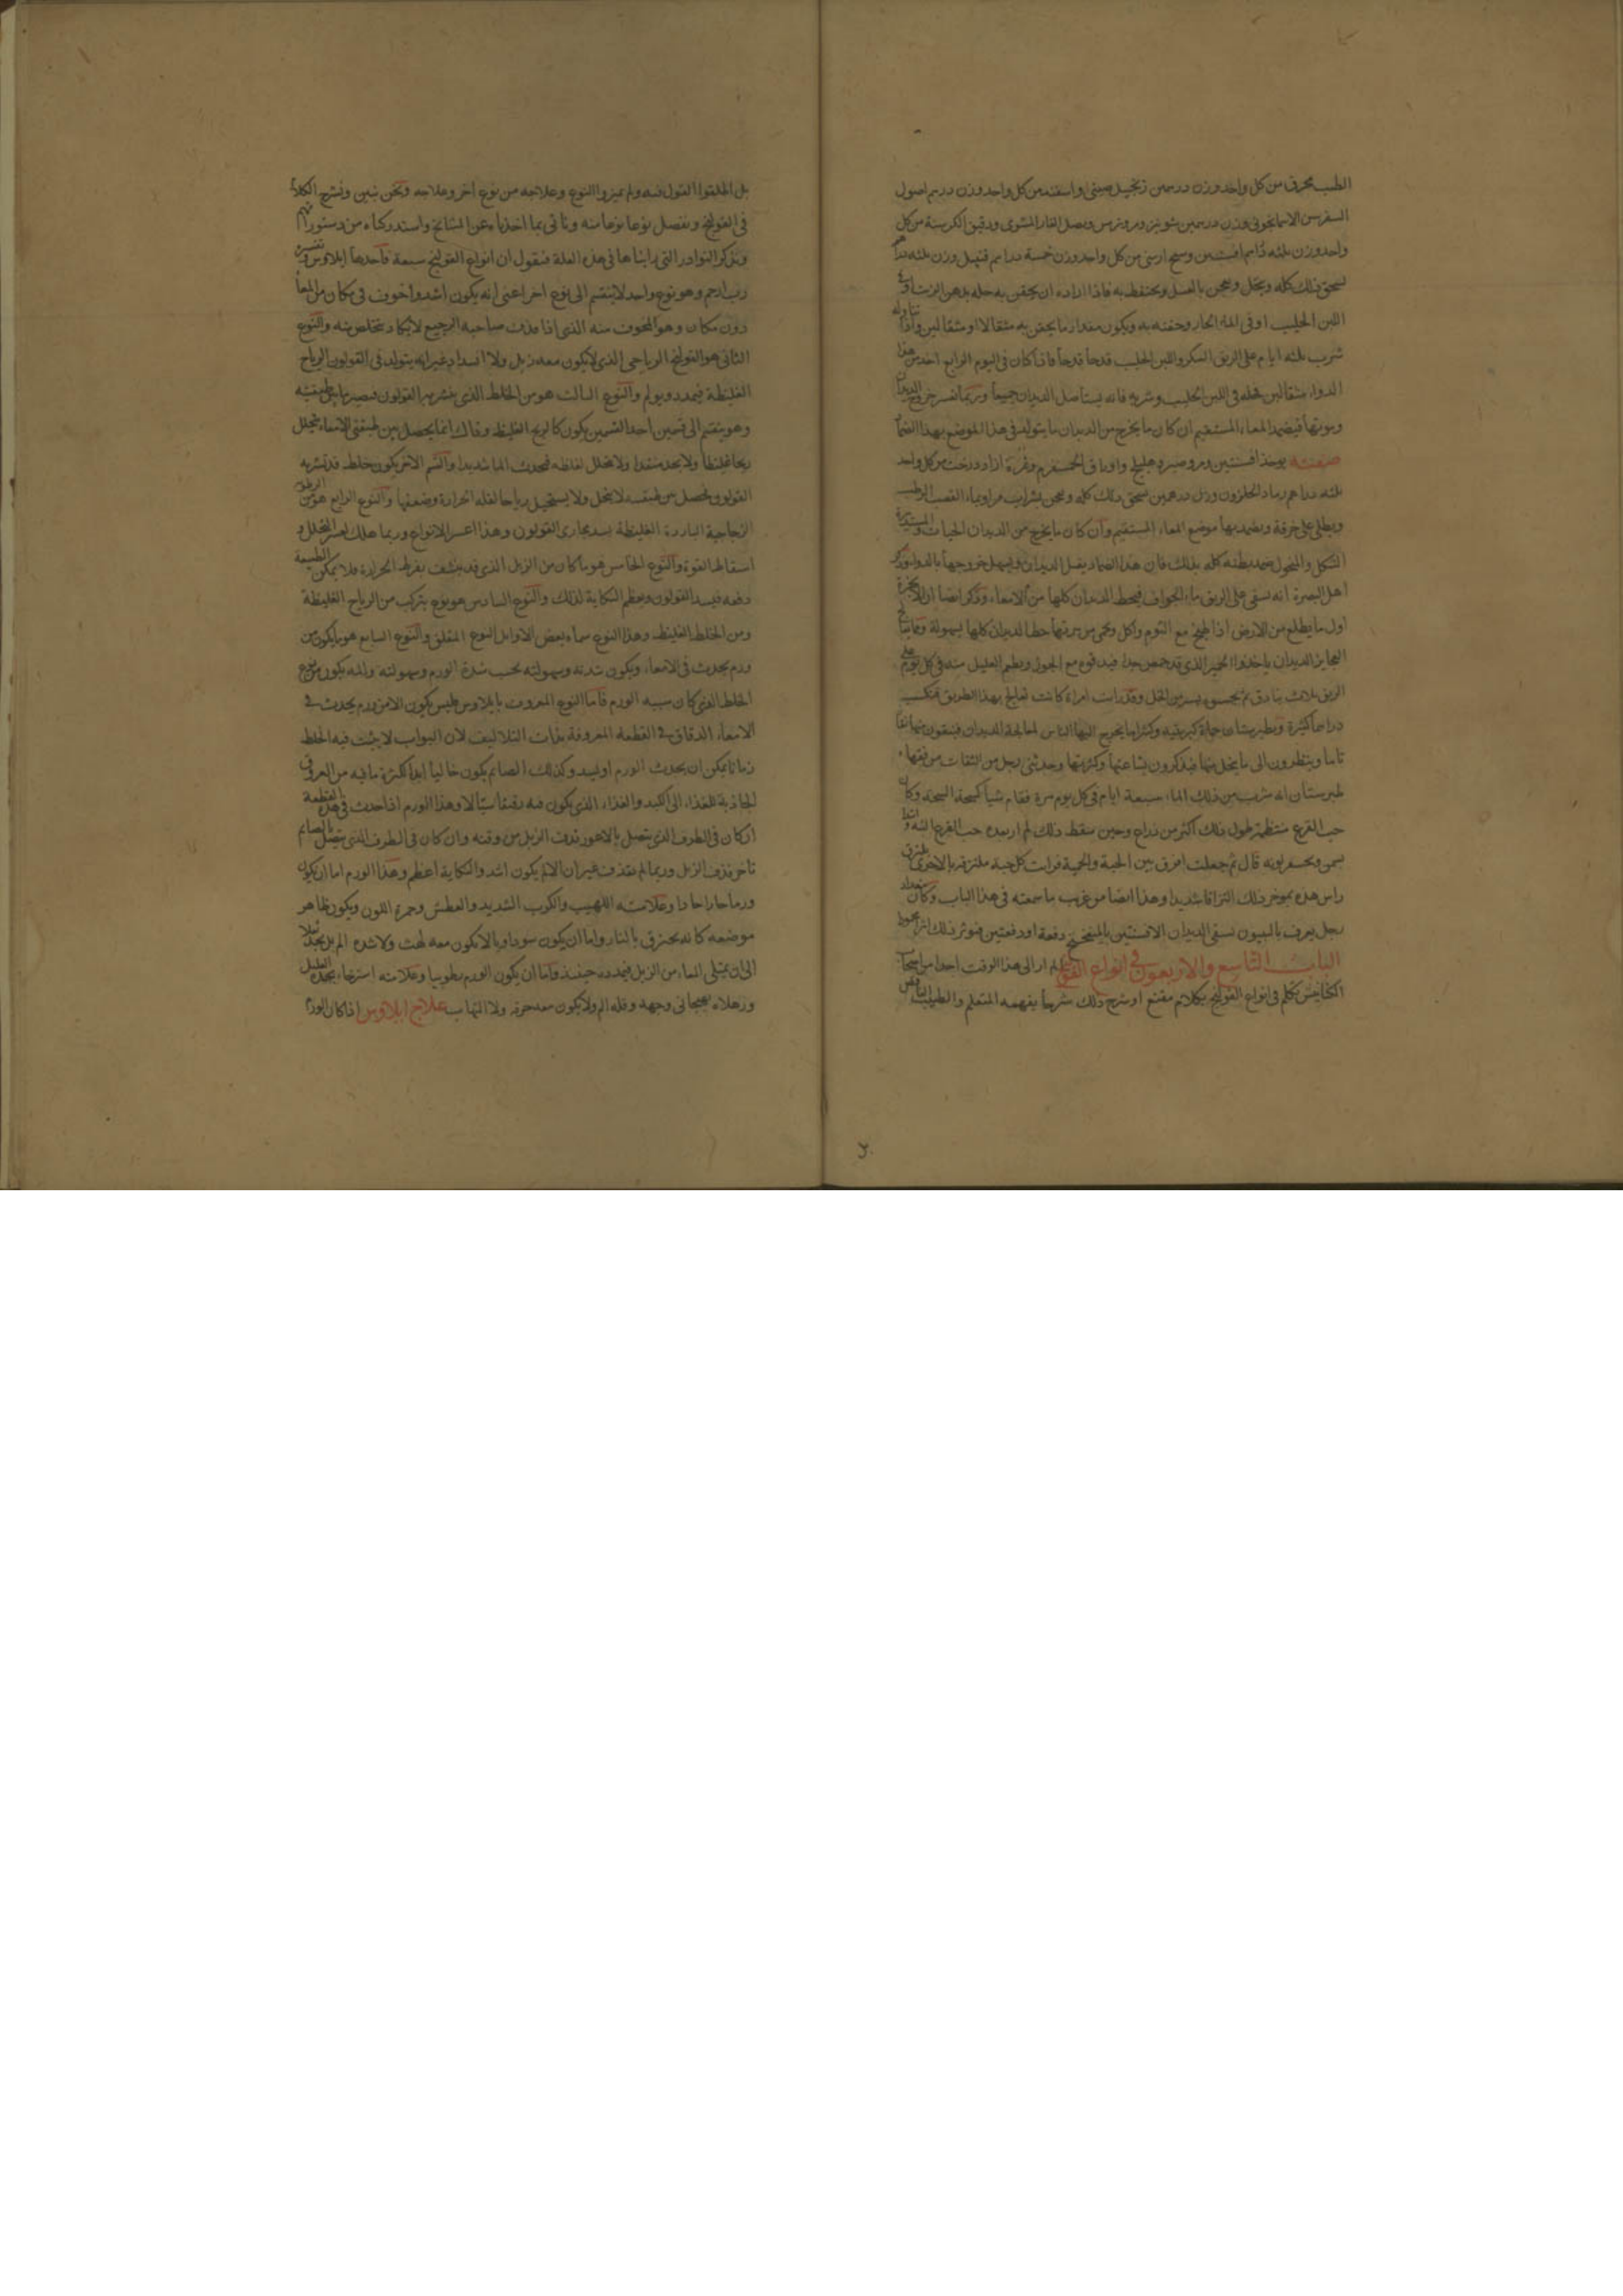 الطيب محرق من كل واحد وزن درهمين زنجبيل صيني واسفند من كل واحد وزن درهم اصول
السوسن الاسمانجوني وزن درهمين شونيز وترمس وبصل الفار المشوي ودقيق الكرسنة من كل
واحد وزن ثلثه دراهم افسنتين وشيح ارمني من كل واحد وزن خمسة دراهم قنبيل وزن ثلثه
يسحق ذلك كله وينخل ويعجن بالعسل ويحتفظ به فاذا اراد ان يحقن به حله بدهن الزيت او في
اللبن الحليب او في الماء الحار وحقنه به ويكون مقدار ما يحقن به مثقالا او مثقالين واذا
شرب ثلثه ايام على الريق السكر واللبن الحليب قدحا قدحا فاذا كان في اليوم الرابع اخذ من هذا
الدواء مثقالين فحله في اللبن الحليب وشربه فانه يستاصل الديدان جميعا وربما تعسر خروج الديدان
وموتها فيضمد المعاء المستقيم ان كان ما يخرج من الديدان ما يتولد في هذا الموضع بهذا الضماد
صفته يوخذ افسنتين ومر وصبر
ثلثه دراهم رماد الحلزون وزن درهمين يسحق ذلك كله ويعجن بشراب مر او بماء القصب الرطب
ويطلى على خرقة ويضمد بها موضع المعاء المستقيم وان كان ما يخرج من الديدان الحيات والمستديرة
الشكل والتحول ضمد بطنه كله بذلك فان هذا الضماد يقتل الديدان ويسهل خروجها بالدواء وذكر
اهل البصرة انه يسقى على الريق ماء فيحط الديدان كلها من الامعاء وذكر ايضا ان
اول ما يطلع من الارض اذا طبخ مع الثوم واكل وتحسى من مرقتها حط الديدان كلها بسهولة
العجاين الديدان ياخذوا الخمير الذي قد حمض جدا فيدقوه مع الجوز ويطعم العليل منه في كل يوم على
الريق ثلاث بنادق ثم يحسو يسير من الخل وقد رايت امراة كانت تعالج بهذا الطريق فتكسب
دراهما كثيرة وبطبرستان حماة كبريتيه وكثيرا ما يخرج اليها الناس لمعالجة الديدان فيسقون منها
وينظرون الى ما ينحل منها فيذكرون بشاعتها وكثرتها وحدثني رجل من الثقات
طبرستان انه شرب من ذلك الماء سبعة ايام في كل يوم مرة فقام شيا كسبحة السبحة وكان
حب القرع منتظمة طول ذلك اكثر من ذراع وحين سقط ذلك لم ار بعده حب القرع البته
يسمن ويحسن لونه قال ثم جعلت افرق بين الحبة والحبة فرايت كل حبة ملتزقه بالاخرى
راس هذه بموخر ذلك التزاقا شديدا وهذا ايضا من غريب ما سمعته في هذا الباب وكان ببغداد
رجل يعرف يسقي الديدان الافسنتين بالميبختج دفعة او دفعتين فتوثر ذلك اثرا محمودا
الباب التاسع والاربعون في انواع القولنج لم ار الى هذا الوقت احدا من اصحاب
الكنانيش تكلم في انواع القولنج بكلام مقنع او شرح ذلك شرحا يفهمه المتعلم والطبيب الناقص
بل اطلقوا القول فيه ولم يميزوا النوع وعلاجه من نوع اخر وعلاجه ونحن نبين ونشرح الكلام
في القولنج ونفصل نوعا نوعا منه وناتي بما اخذناه عن المشائخ واستدركناه من دستوراتهم
ونذكر النوادر التي راينا ها في هذه العلة فنقول ان انواع القولنج سبعة فاحدها ايلاوس وتفسيره
رب ارحم وهو نوع واحد لا ينقسم الى نوع اخر اعني انه يكون اشد واخوف في مكان من المعاء
دون مكان وهو المخوف منه الذي اذا قذف صاحبه الرجيع لا يكاد يتخلص منه والنوع
الثاني هو القولنج الرياحي الذي لا يكون معه زبل ولا انسداد غير انه يتولد في القولون الرياح
الغليظة فيمدد ويولم والنوع الثالث هو من الخلط الذي يتشربه القولون فيصير
وهو ينقسم الى قسمين احد القسمين يكون كالريح الغليظ وذاك انما يحصل بين طبقتي الامعاء فيتحلل
ريحا غليظا ولا يجد منفذا ولا يتحلل لغلظه فيحدث الما شديدا والقسم الاخر يكون خلط قد تشربه
القولون وتحصل بين طبقتيه لا ينحل ولا يستحيل رياحا لقلة الحرارة وضعفها والنوع الرابع هو من الرطوبه
الزجاجية الباردة الغليظة يسد مجاري القولون وهذا اعسر الانواع وربما هلك لعسر التحلل و
اسقاطها القوة والنوع الخامس هو ما كان من الزبل الذي قد ينشف بفرط الحرارة فلا يمكن الطبيعة
دفعه فيسد القولون ويعظم النكاية لذلك والنوع السادس هو نوع يتركب من الرياح الغليظة
ومن الخلط الغليظ وهذا النوع سماه بعض الاوايل النوع المقلق والنوع السابع هو ما يكون من
ورم يحدث في الامعاء ويكون شدته وسهولته بحسب شدة الورم وسهولته والمه يكون من نوع
الخلط الذي كان سببه الورم فاما النوع المعروف بايلاوس فليس يكون الا من ورم يحدث في
الامعاء الدقاق في القطعه المعروفة بذات التلافيف لان البواب لا يثبت فيه الخلط
زمانا يمكن ان يحدث الورم او يسد وكذلك الصائم يكون خاليا ابدا لكثرة ما فيه من العروق
الجاذبة للغذاء الى الكبد والغذاء الذي يكون فيه رقيقا سيالا وهذا الورم اذا حدث في هذه القطعة
ان كان في الطرف الذي يتصل بالاعور قذف الزبل من وقته وان كان في الطرف الذي يتصل بالصائم
تاخر قذف الزبل وربما لم يقذف غير ان الالم يكون اشد والنكاية اعظم وهذا الورم اما ان يكون
ورما حارا حادا وعلامته اللهيب والكرب الشديد والعطش وحمرة اللون ويكون ظاهر
موضعه كانه يحترق بالنار واما ان يكون سوداويا لا يكون معه لهث ولا شدة الم بل يجد ثقلا
الى ان يمتلى المعاء من الزبل فيمدده حينئذ واما ان يكون الورم رطوبيا وعلامته استرخاء يجده العليل
ورهلا وتهيجا في وجهه وقلة الم ولا يكون معه حرقة ولا التهاب علاج ايلاوس اذا كان الورم